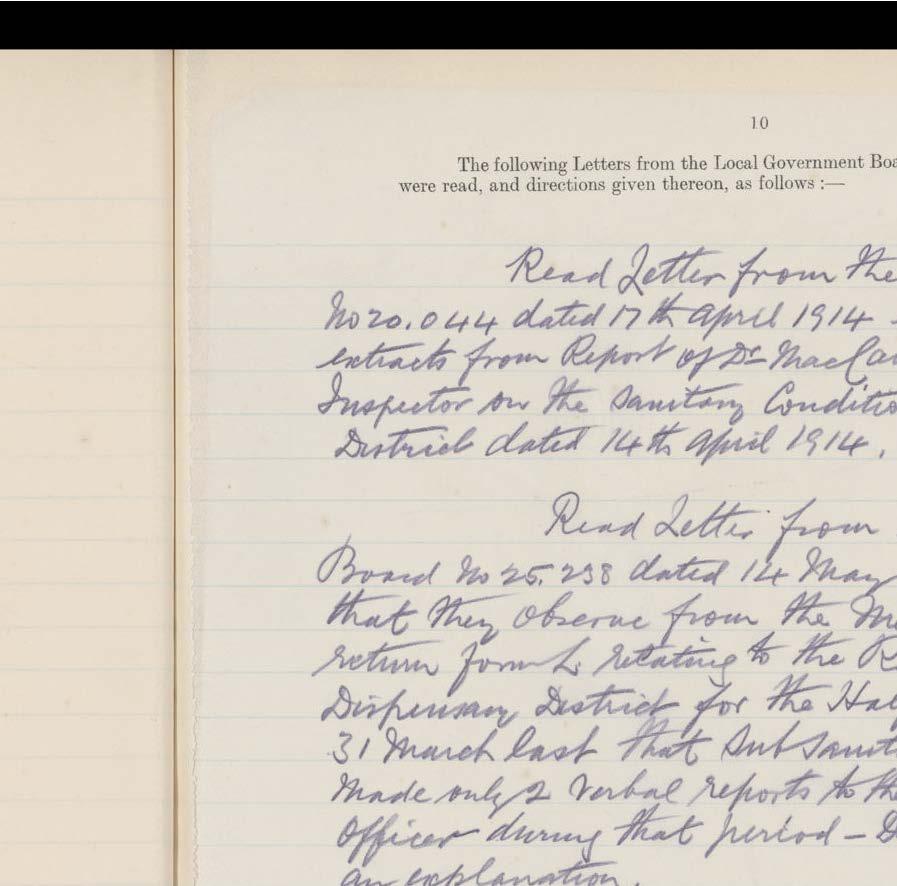 10
The following Letters from the Local Government Boa
were read, and directions given thereon, as follows :—
Read Letter from the
No 20.044 dated 17th April 1914 -
extracts from Report of Dr MacCa
Inspector on the Sanitary Conditio
District dated 14th April 1914.
Read Letter from
Board No 25.238 dated 14 May
that they observe from the Me
return form L. relating to the R
Dispensary District for the Hal
31 March last that Sub Sanit
Made only 2 Verbal reports to the
Officer during that period – D
an explanation.